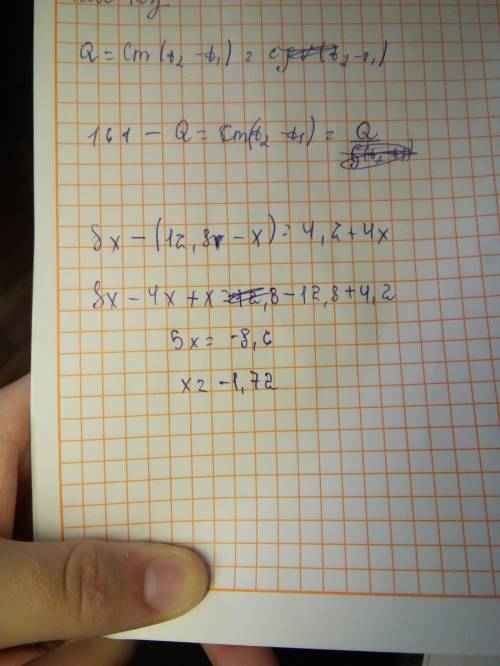 Q = Cm (t₂ - t₁) = c (t₂ - t₁)
161 - Q = Cm(t₂ - t₁) = Q
8x - (12,8 - x) = 4,2 + 4x
8x - 4x + x = - 12,8 + 4,2
5x = -8,6
x = -1,72